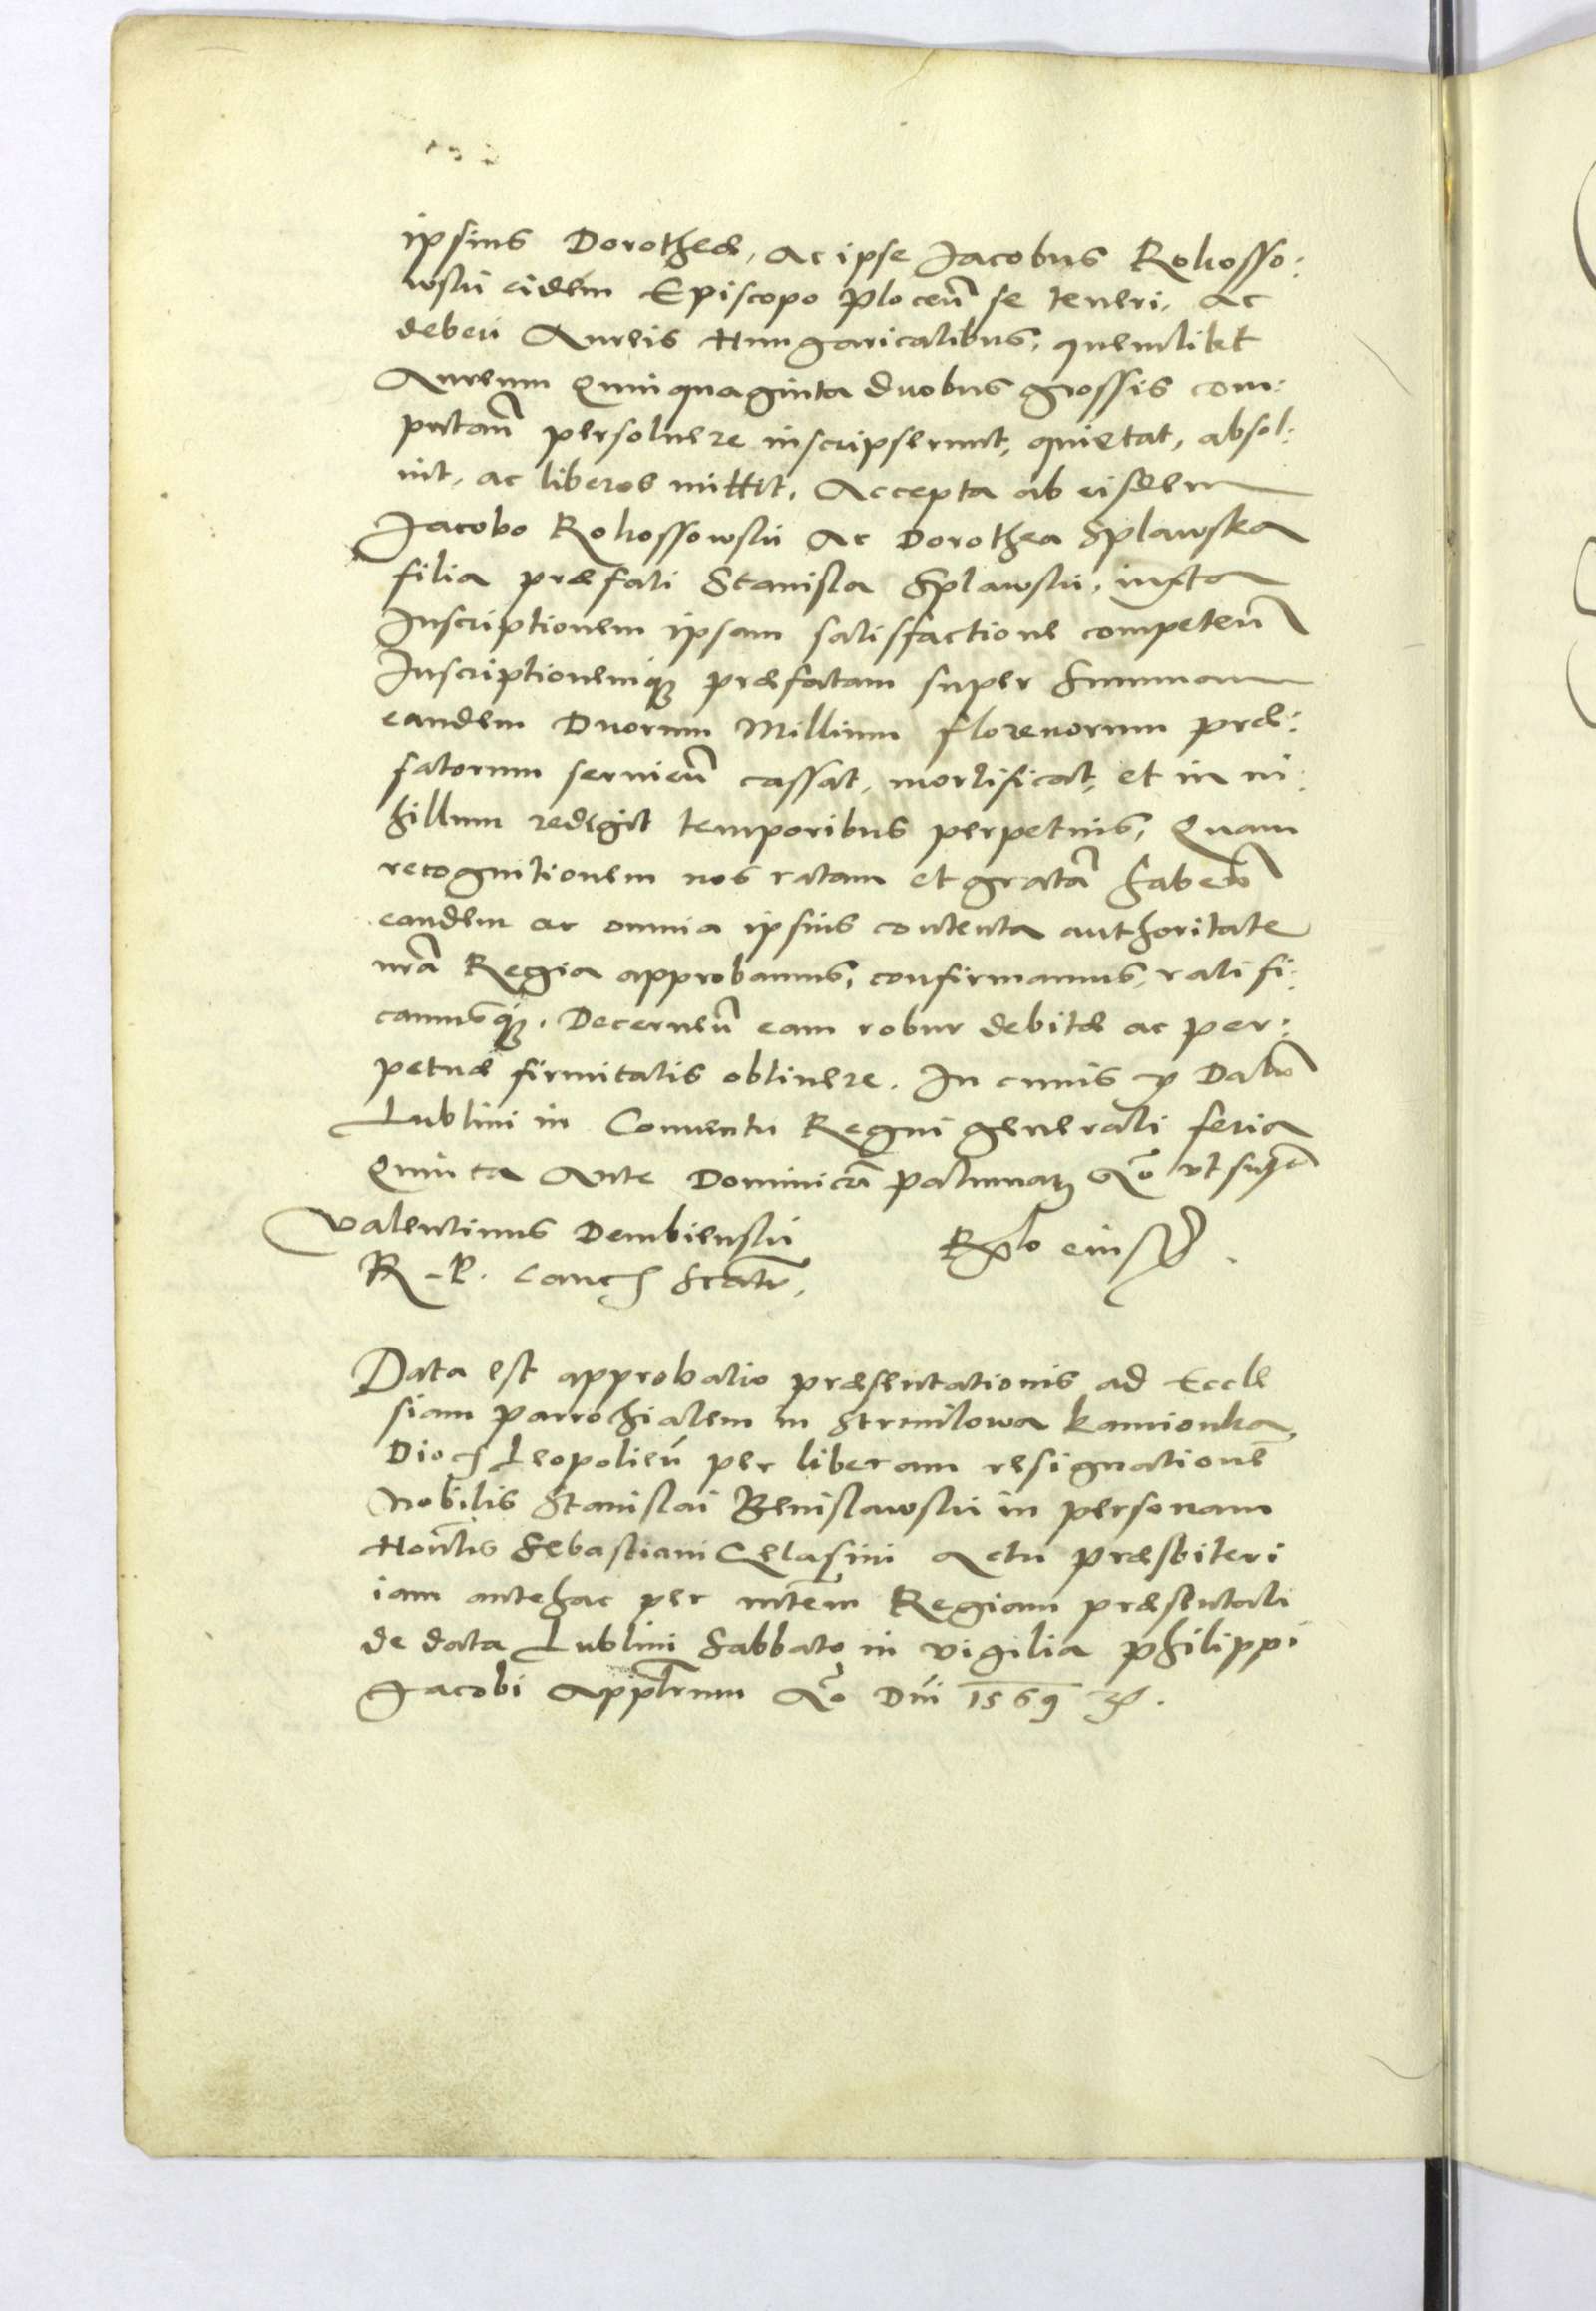 ipsius Dorotheæ, ac ipse Jacobus Rokosso:
wski eidem Episcopo Plocen̄ se teneri, ac
deberi Aureis Hungaricalibus, quemlibet
Aureum Quinquaginta duobus grossis com:
putan̄ persoluere inscripserunt, quietat, absol:
uit, ac liberos mittit, Accepta ab eisdem
Jacobo Rokossowski ac Dorothea Splawska
filia præfati Stanisla Splawski, iuxta
Inscriptionem ipsam satisfactione competen̄
Inscriptionemq́ꝫ præfatam super Summam
eandem Duorum Millium florenorum præ:
fatorum seruien̄ cassat, mortificat, et in ni:
hillum redigit temporibus perpetuis, Quam
recognitionem nos ratam et gratā haben̄
eandem ac omnia ipsius contenta authoritate
nr̄a Regia approbamus, confirmamus, ratifi:
camusq́ꝫ. Decernen̄ eam robur debitæ ac per:
petuæ firmitatis obtinere. In cuius ꝛc Datū
Lublini in Conuentu Regni generali feria
Quinta Ante Dominicā palmaꝝ Ao vt supra
Valentinus Dembienski
R. P. Canc Scatr. Rlo eiusd.
Data est approbatio præsentationis ad Eccle
siam parrochialem in Strumilowa kamionka,
Dioc Leopolien̄ per liberam resignationē
Nobilis Stanislai Benislawski in personam
Honlis Sebastiani Gelasini Actu præsbiteri
iam antehac per mtem Regiam præsentati
de data Lublini Sabbato in vigilia philippi
Jacobi Appl̄rum Ao Dni 1569 ꝛc.